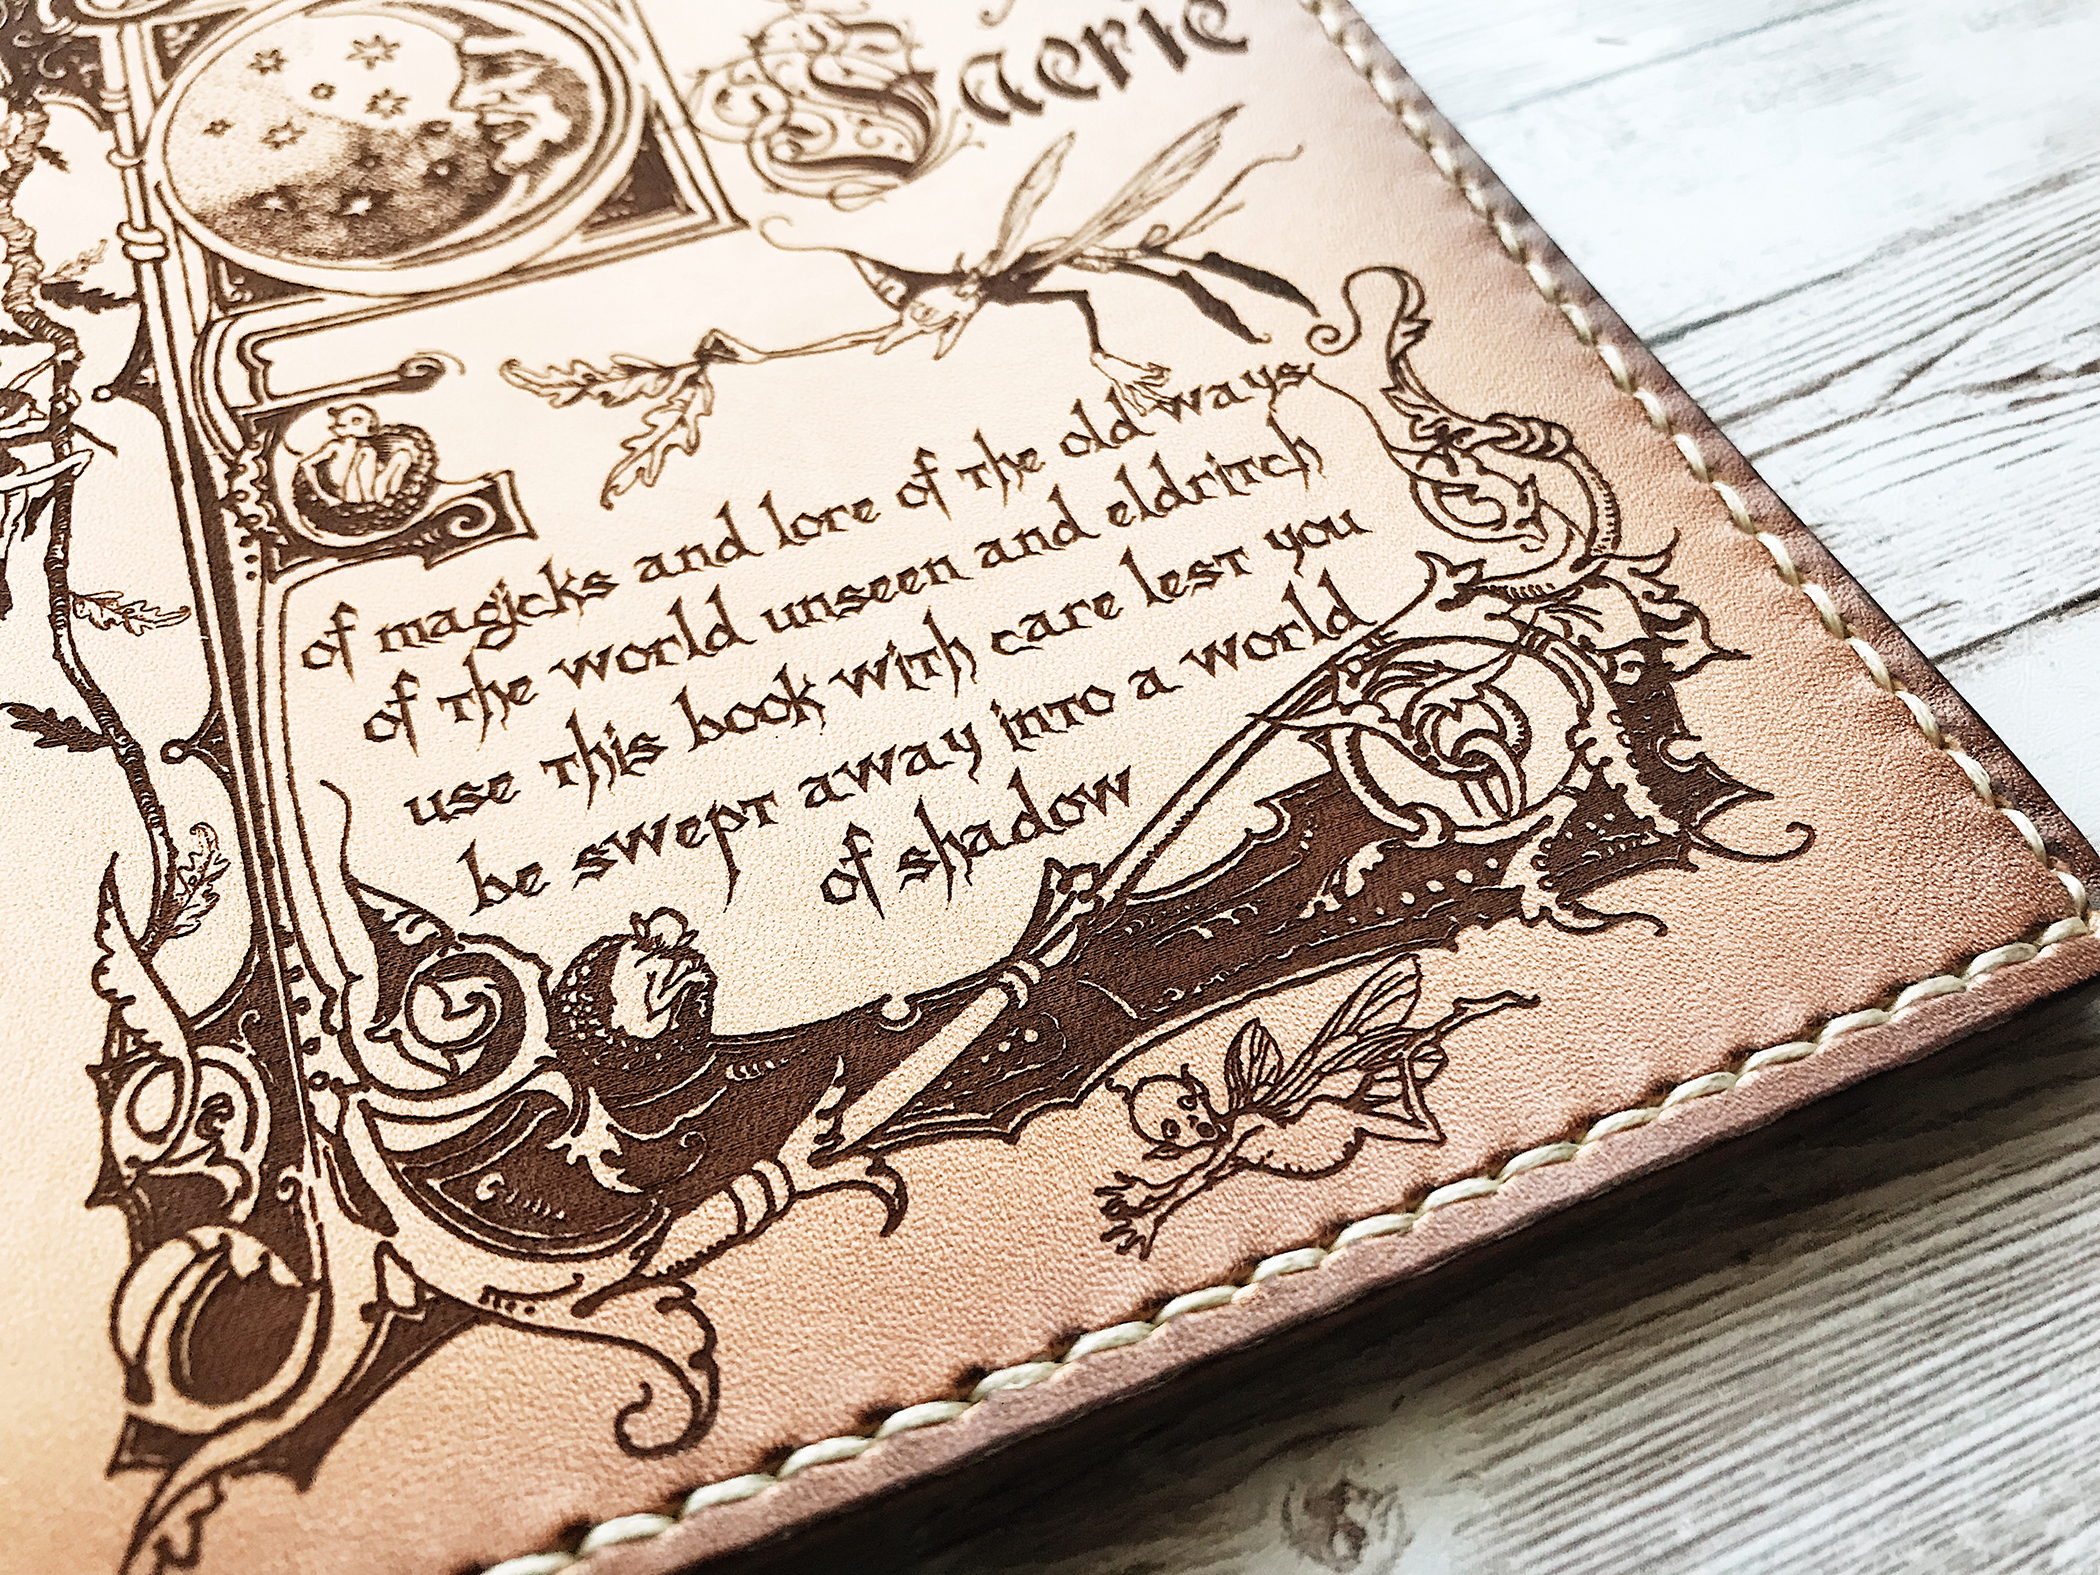 Faerie
of magicks and lore of the old ways
of the world unseen and eldritch
use this book with care lest you
be swept away into a world
of shadow